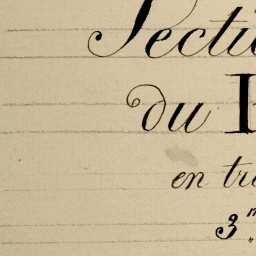 Secti
du
en tr
3